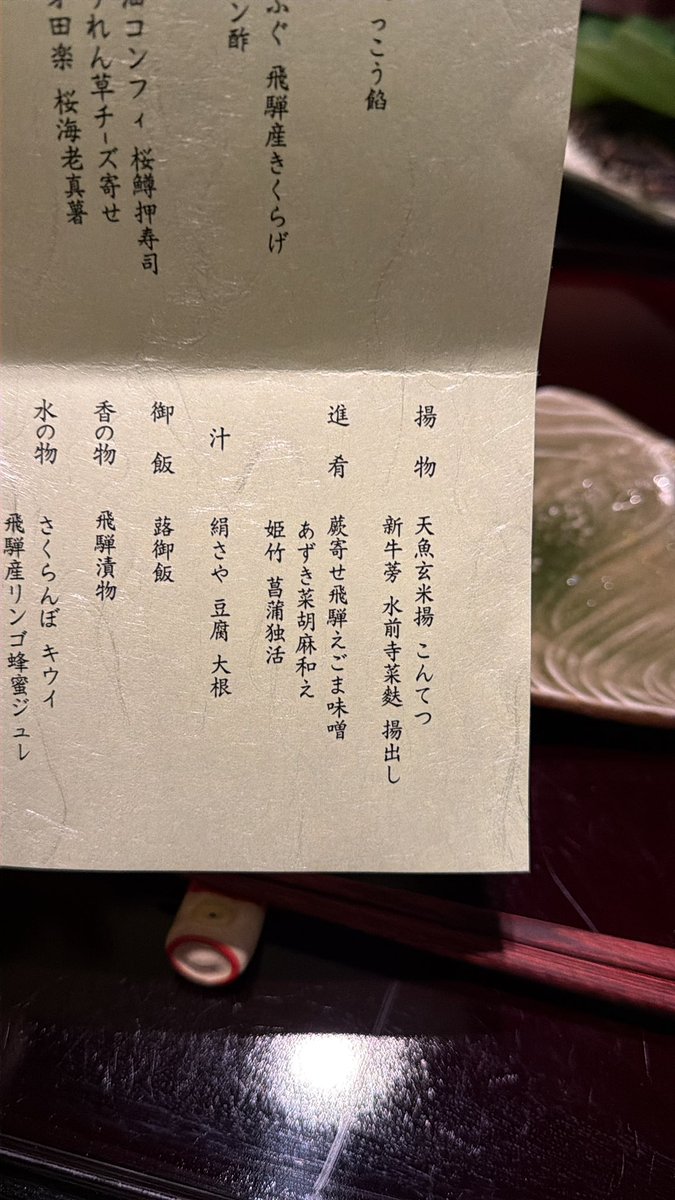 っこう餡
ふぐ 飛騨産きくらげ
ン酢
コンフィ 桜鱒押寿司
れん草チーズ寄せ
田楽 桜海老真薯
揚物 天魚玄米揚 こんてつ
新牛蒡 水前寺菜麩 揚出し
進肴 蕨寄せ飛騨えごま味噌
あずき菜胡麻和え
姫竹 菖蒲独活
汁 絹さや 豆腐 大根
御飯 蕗御飯
香の物 飛騨漬物
水の物 さくらんぼ キウイ
飛騨産リンゴ蜂蜜ジュレ